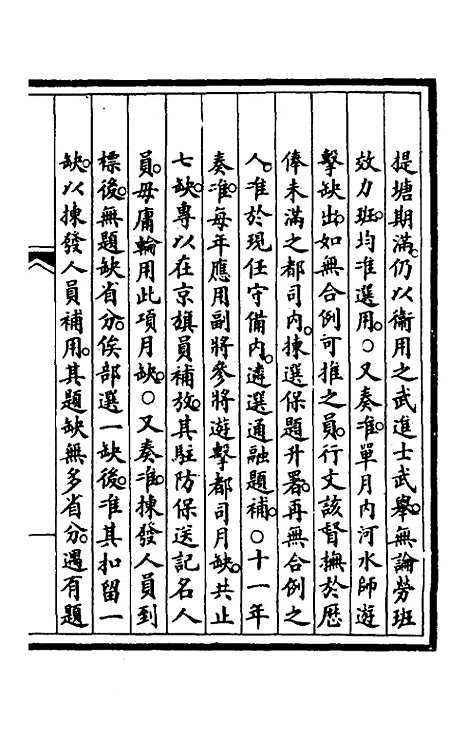 提塘期滿。仍以衞用之武進士武舉。無論勞班
效力班。均准選用。○又奏准。單月內河水師遊
擊缺出。如無合例可推之員。行文該督撫於歷
俸未滿之都司內。揀選保題升署。再無合例之
人。准於現任守備內。遴選通融題補。○十一年
奏准。每年應用副將參將遊擊都司月缺。共止
七缺。專以在京旗員補放。其駐防保送記名人
員。毋庸輪用此項月缺。○又奏准。揀發人員到
標後。無題缺省分。俟部選一缺後。准其扣留一
缺。以揀發人員補用。其題缺無多省分。遇有題